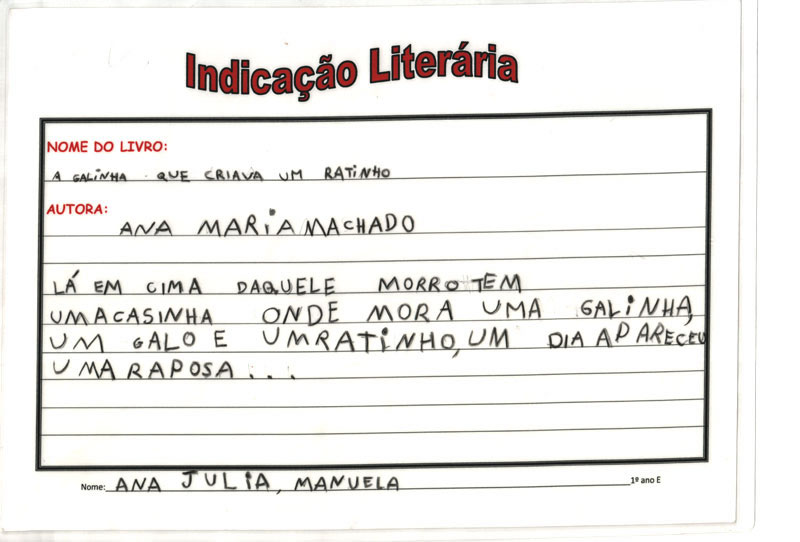 Indicação Literária
NOME DO LIVRO:
A GALINHA QUE CRIAVA UM RATINHO
AUTORA:
ANA MARIA MACHADO
LÁ EM CIMA DAQUELE MORRO TEM
UMACASINHA ONDE MORA UMA GALINHA,
UM GALO E UMRATINHO, UM DIA APARECEU
UMA RAPOSA...
Nome: ANA JULIA, MANUELA 1º ano E